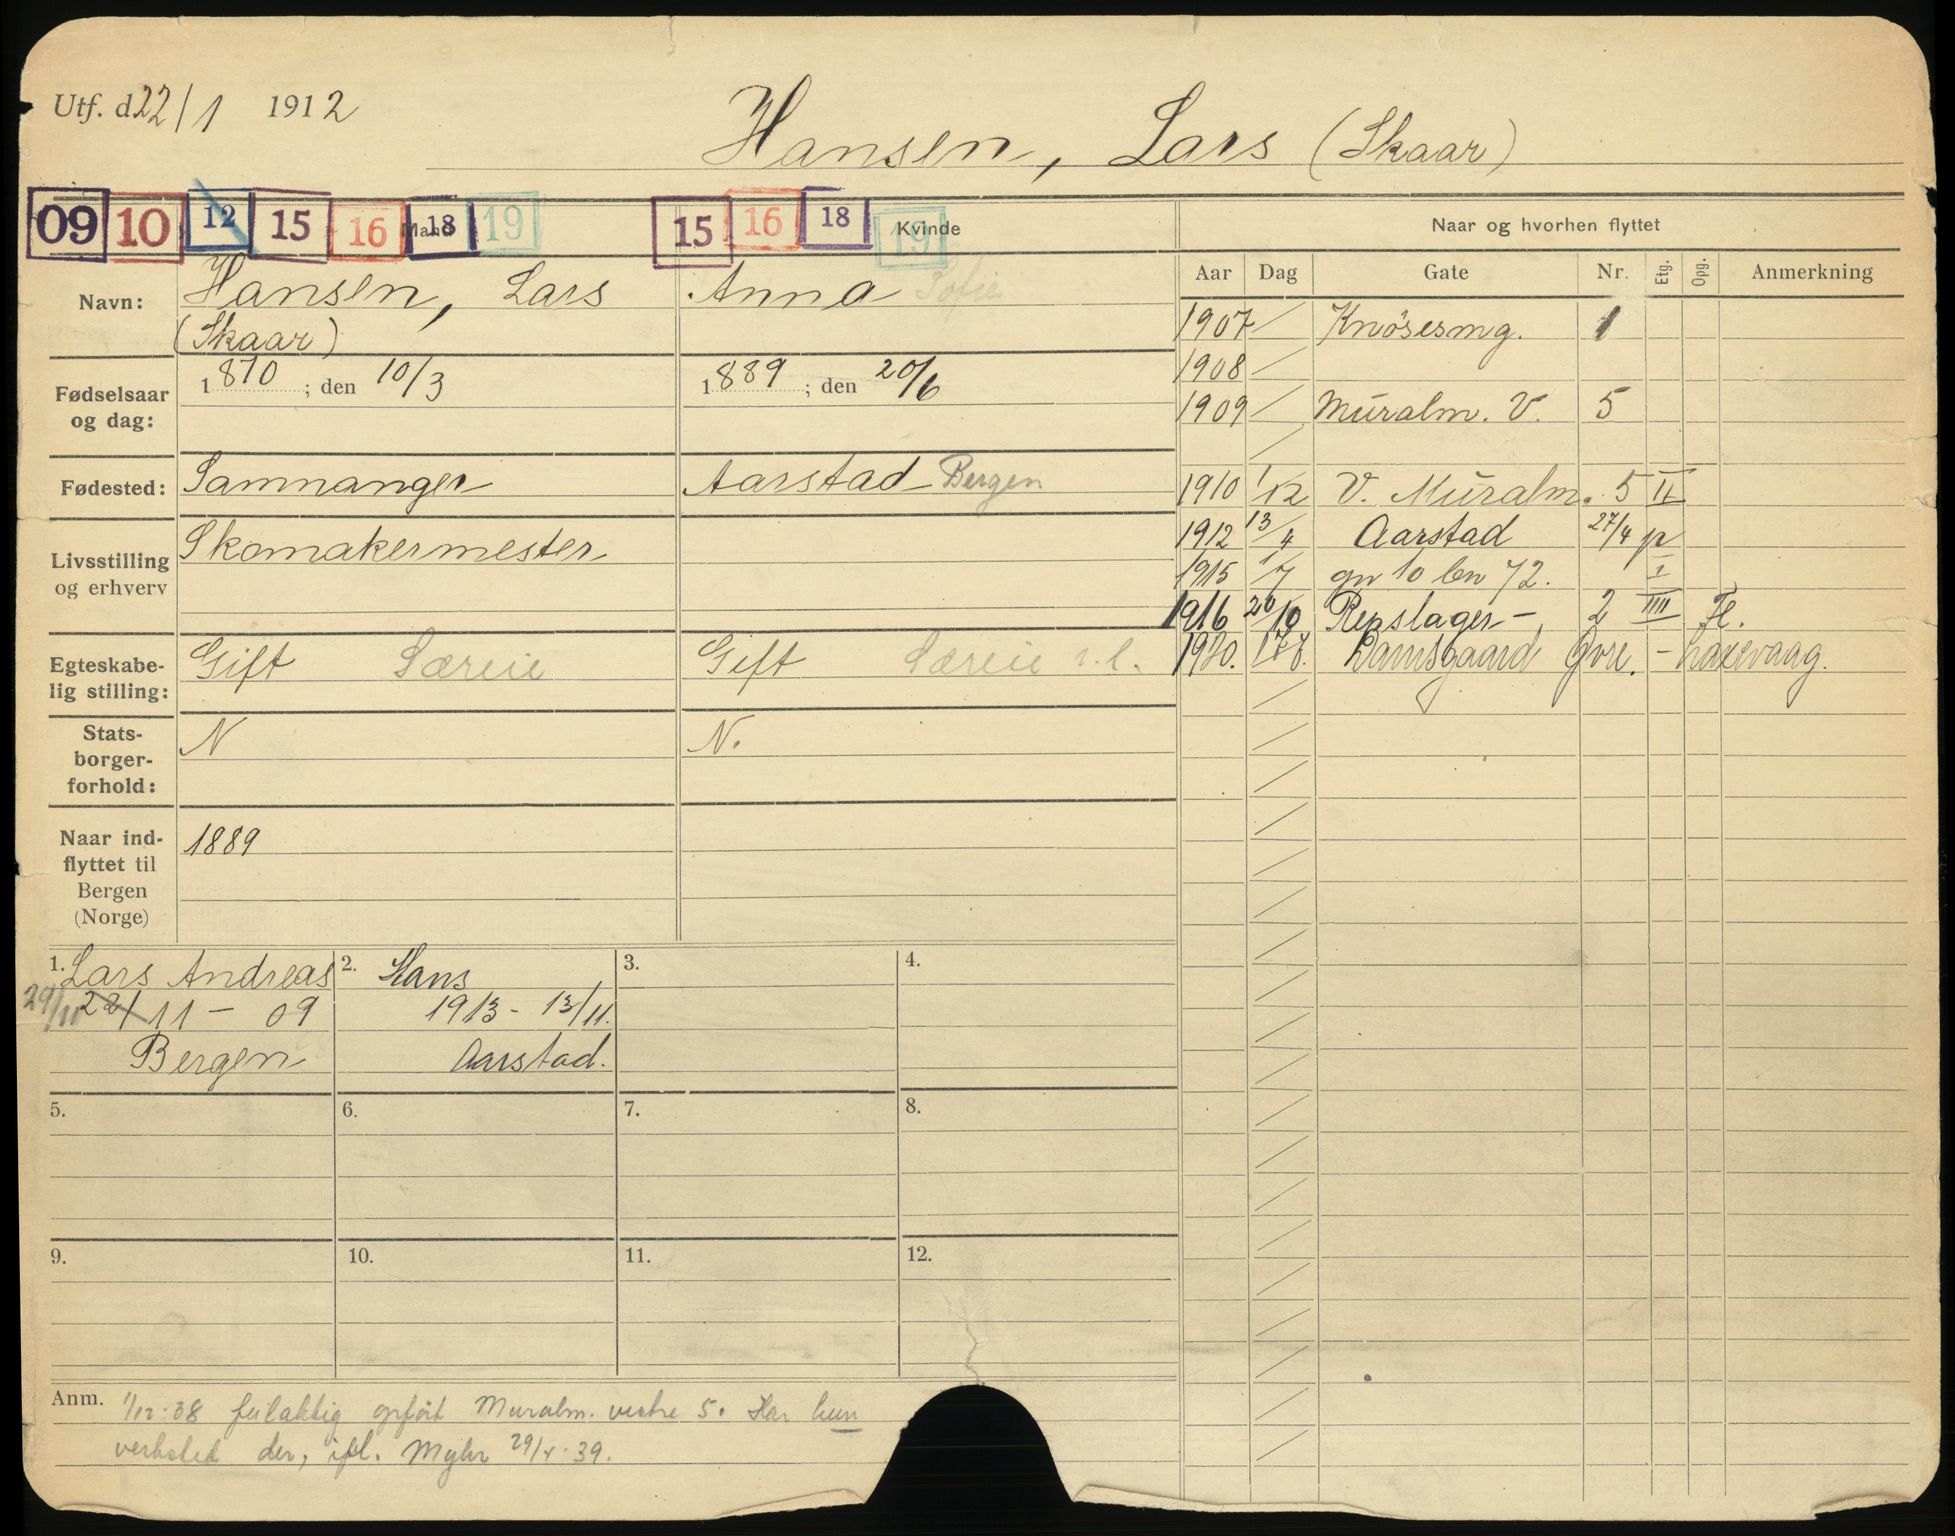 Utf. d 22/1 1912
Hansen, Lars (Skaar)
09 10 12 15 16 Mand 18 19 15 16 18 19 Kvinde
Naar og hvorhen flyttet
Aar Dag Gate Nr. Etg. Opg. Anmerkning
Navn: Hansen, Lars Anna Sofie
(Skaar)
Fødselsaar 1870; den 10/3 1889; den 20/6
og dag:
Fødested: Samnanger Aarstad Bergen
Livsstilling Skomakermester
og erhverv
Egteskabe- Gift Særeie Gift Særeie
lig stilling:
Stats- N N.
borger-
forhold:
Naar ind- 1889
flyttet til
Bergen
(Norge)
1907 / Knøsesmg. 1
1908 /
1909 / Muralm. V. 5
1910 1/12 V. Muralm. 5 II
1912 13/4 Aarstad 27/4 p
1915 1/7 gn 10 bn 72. I
1916 20/10 Repslager- 2 IIII Fl.
1920. Damsgaard Øvre. - Laxevaag.
1. Lars Andreas
29/11 22/11 - 09
Bergen
2. Hans
1913 - 13/11.
Aarstad.
3.
4.
5.
6.
7.
8.
9.
10.
11.
12.
Anm. 1/12-38 feilaktig opført Muralm. vestre 5. Har kun
verksted der, ifl. Myhr 29/4-39.